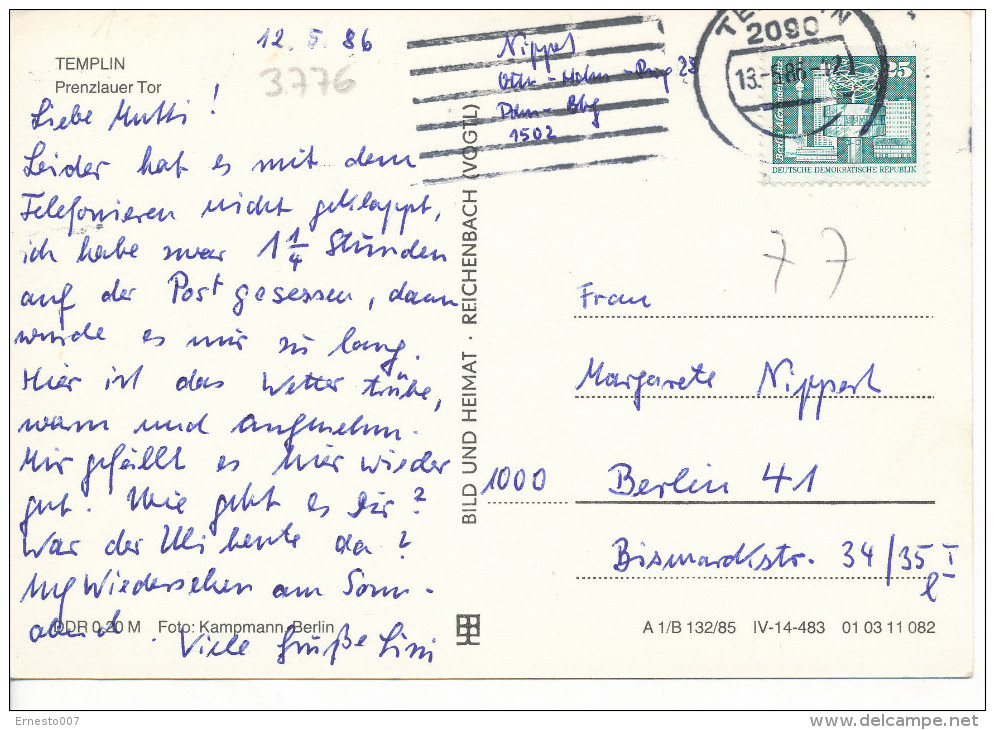 12. 5. 86
TEMPLIN
Prenzlauer Tor
3776
Liebe Mutti!
Leider hat es mit dem
Telefonieren nicht geklappt,
ich habe zwar 1 1/4 Stunden
auf der Post gesessen, dann
wurde es mir zu lang.
Hier ist das Wetter trübe,
warm und angenehm.
Mir gefällt es hier wieder
gut. Wie geht es Dir?
War der Uli heute da?
Wiedersehen am Sonn-
abend.
Viele Grüße
DDR 0,20 M Foto: Kampmann, Berlin
BILD UND HEIMAT · REICHENBACH (VOGTL)
Nippert
Otto-Hahn-Ring 28
Pdm-Bbg
1502
2090
13.-5.86
25
DEUTSCHE DEMOKRATISCHE REPUBLIK
77
Frau
Margarete Nippert
1000 Berlin 41
Bismarckstr. 34/35 I
l
A 1/B 132/85 IV-14-483 01 03 11 082
Ernesto007
delcampe.net